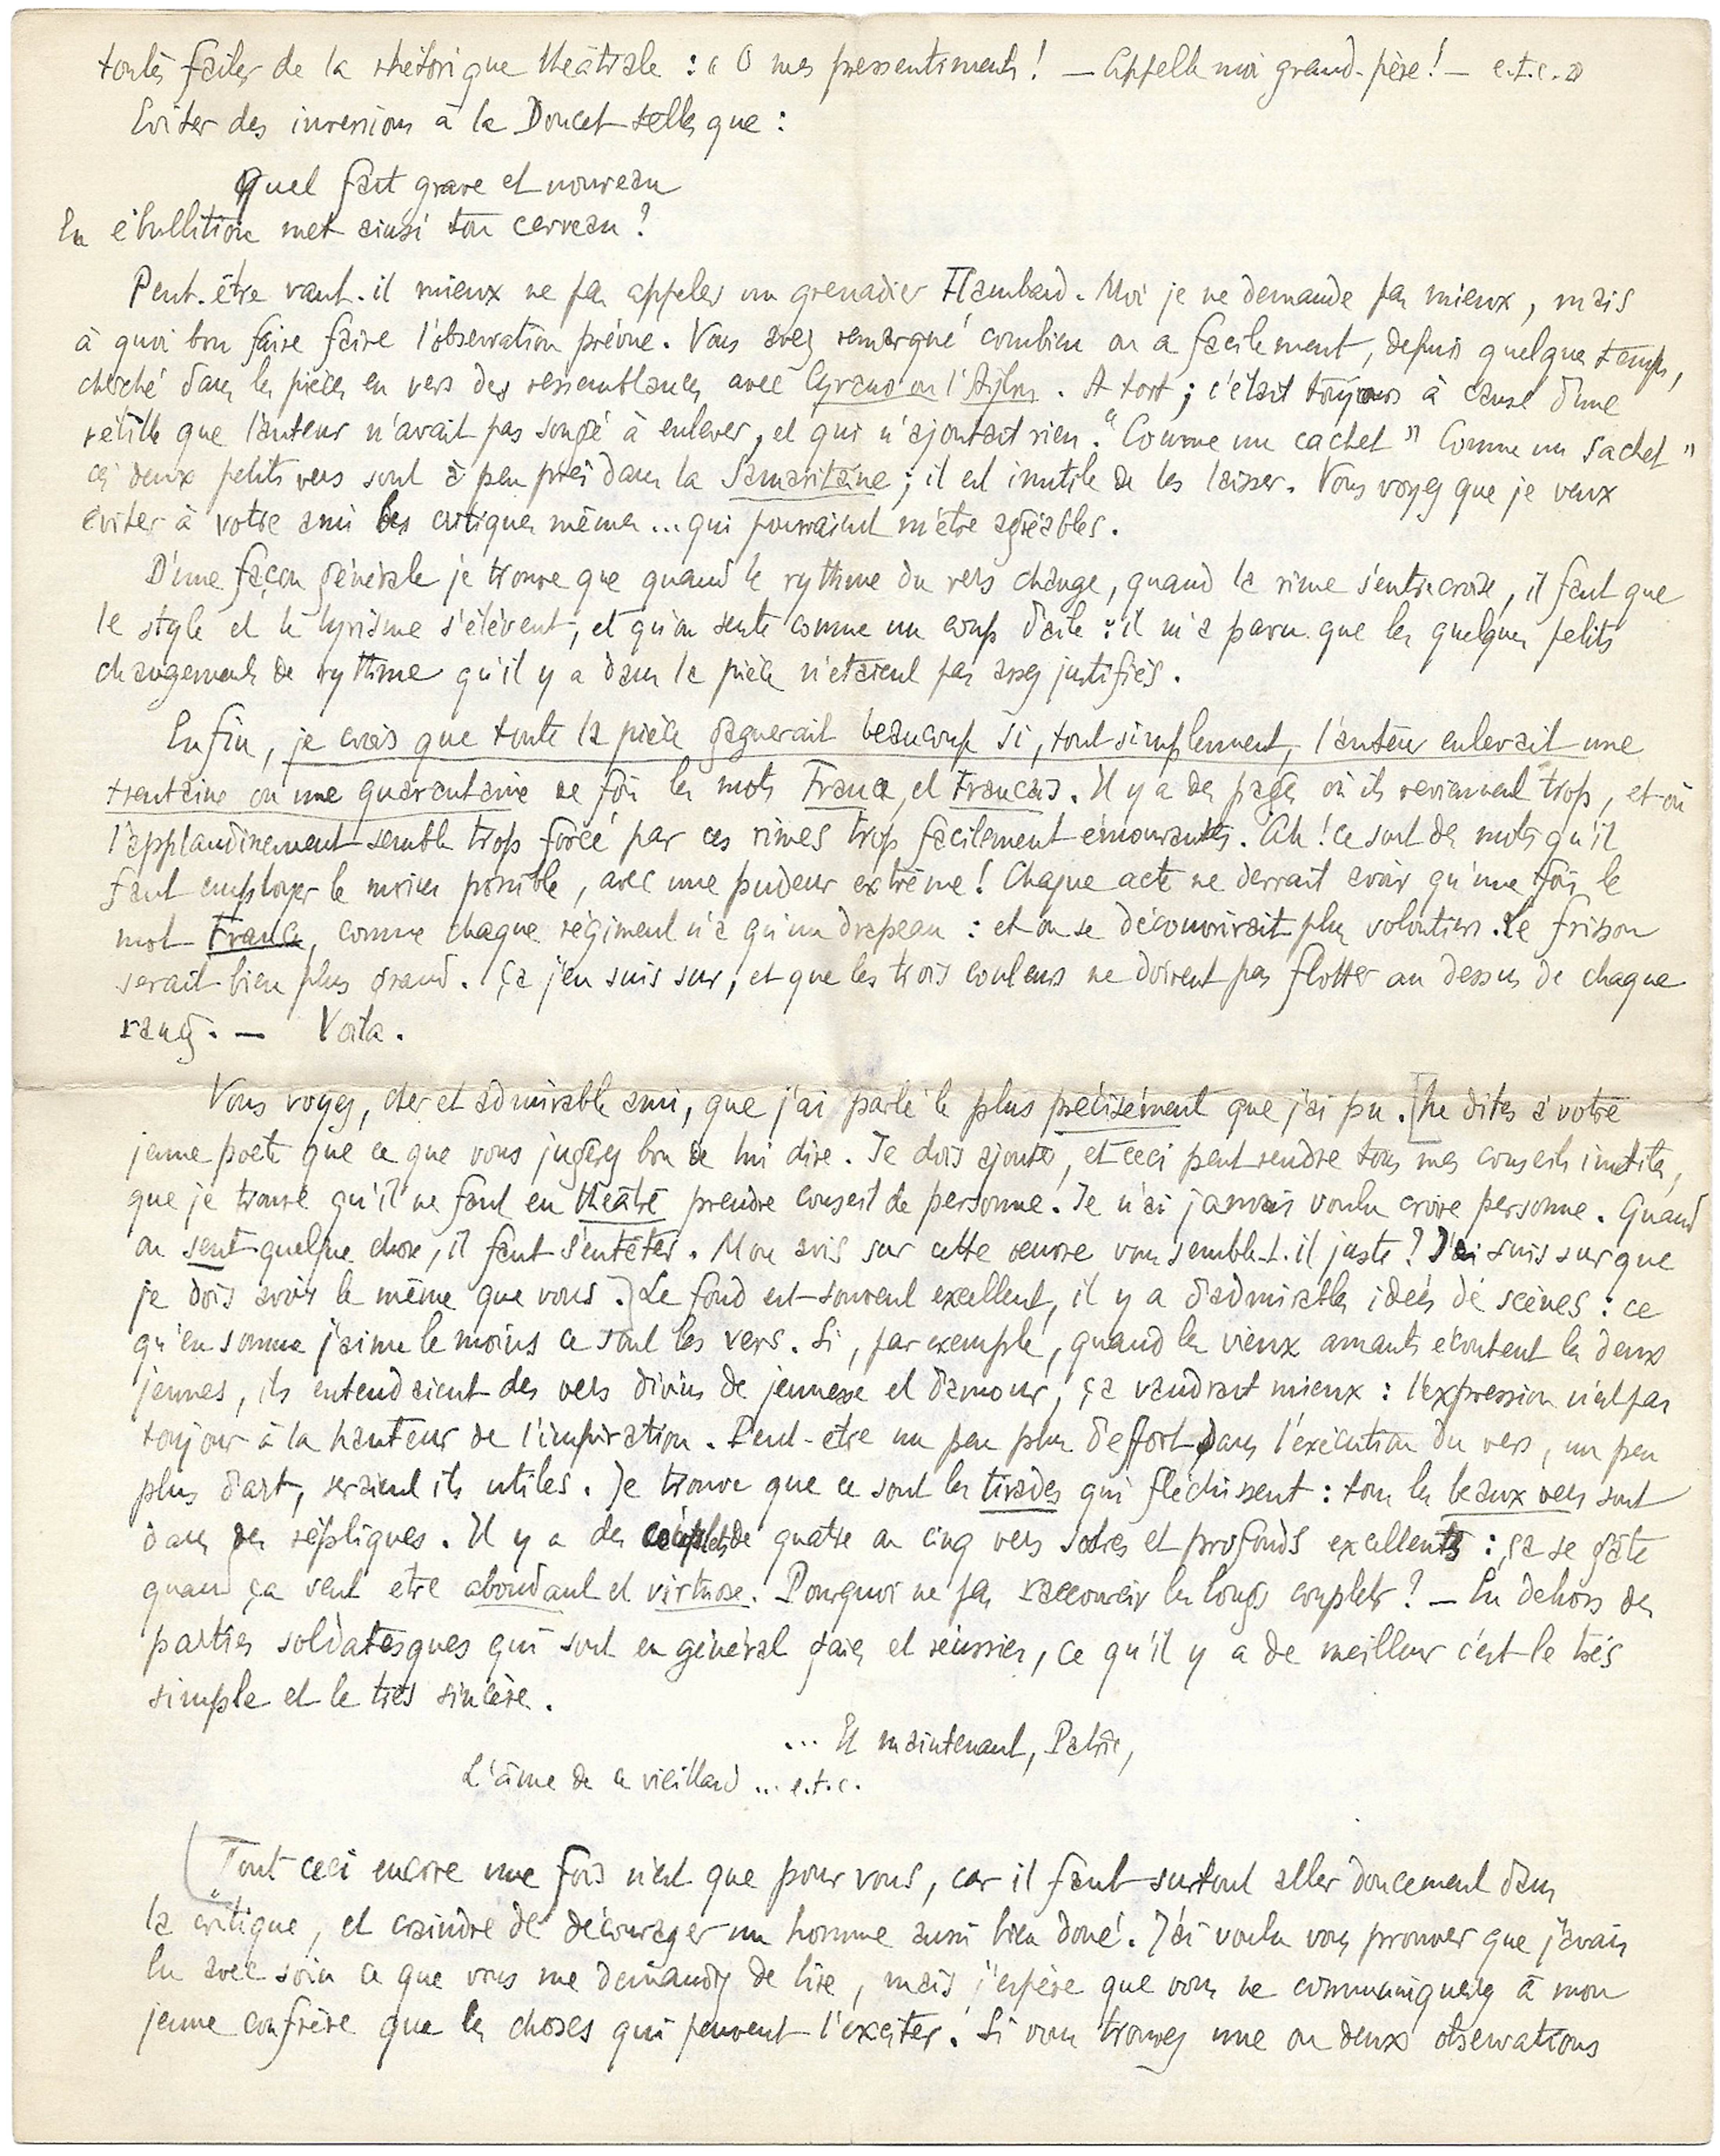 toutes faites de la rhétorique théâtrale : « O mes pressentiments ! — Appelle moi grand-père ! — e.t.c. »
Eviter des inversions à la Doucet telles que :
Quel fait grave et nouveau
En ébullition met ainsi ton cerveau ?
Peut-être vaut-il mieux ne pas appeler un grenadier Flambard. Moi je ne demande pas mieux, mais
à quoi bon faire faire l'observation prévue. Vous avez remarqué combien on a facilement, depuis quelque temps,
cherché dans les pièces en vers des ressemblances avec Cyrano ou l'Aiglon. A tort ; c'était toujours à cause d'une
vétille que l'auteur n'avait pas songé à enlever, et qui n'ajoutait rien. "Comme un cachet" Comme un sachet"
ces deux petits vers sont à peu près dans la Samaritaine ; il est inutile de les laisser. Vous voyez que je veux
éviter à votre ami les critiques mêmes... qui pourraient m'être agréables.
D'une façon générale je trouve que quand le rythme du vers change, quand la rime s'entrecroise, il faut que
le style et le lyrisme s'élèvent, et qu'on sente comme un coup d'aile : il m'a paru que les quelques petits
changements de rythme qu'il y a dans la pièce n'étaient pas assez justifiés.
Enfin, je crois que toute la pièce gagnerait beaucoup si, tout simplement, l'auteur enlevait une
trentaine ou une quarantaine de fois les mots France et Français. Il y a des pages où ils reviennent trop, et où
l'applaudissement semble trop forcé par ces rimes trop facilement émouvantes. Ah ! ce sont des mots qu'il
faut employer le moins possible, avec une pudeur extrême ! Chaque acte ne devrait avoir qu'une fois le
mot France, comme chaque régiment n'a qu'un drapeau : et on se découvrirait plus volontiers. Le frisson
serait bien plus grand. Ça j'en suis sur, et que les trois couleurs ne doivent pas flotter au dessus de chaque
rang. — Voilà.
Vous voyez, cher et admirable ami, que j'ai parlé le plus précisément que j'ai pu. [Ne dites à votre
jeune poète que ce que vous jugerez bon de lui dire. Je dois ajouter, et ceci peut rendre tous mes conseils inutiles,
que je trouve qu'il ne faut en théâtre prendre conseil de personne. Je n'ai jamais voulu croire personne. Quand
on sent quelque chose, il faut s'entêter. Mon avis sur cette oeuvre vous semble-t-il juste ? J'en suis sur que
je dois avoir le même que vous.] Le fond est souvent excellent, il y a d'admirables idées de scènes : ce
qu'en somme j'aime le moins ce sont les vers. Si, par exemple, quand les vieux amants écoutent les deux
jeunes, ils entendaient des vers divins de jeunesse et d'amour, ça vaudrait mieux : l'expression n'est pas
toujours à la hauteur de l'inspiration. Peut-être un peu plus d'effort dans l'exécution du vers, un peu
plus d'art, seraient ils utiles. Je trouve que ce sont les tirades qui fléchissent : tous les beaux vers sont
dans des répliques. Il y a des couplets de quatre ou cinq vers sobres et profonds excellents : ça se gâte
quand ça veut être abondant et virtuose. Pourquoi ne pas raccourcir les longs couplets ? — En dehors des
parties soldatesques qui sont en général gaies et réussies, ce qu'il y a de meilleur c'est le très
simple et le très sincère.
... Et maintenant, Patrie,
L'âme de ce vieillard ... e.t.c.
(Tout ceci encore une fois n'est que pour vous, car il faut surtout aller doucement dans
la critique, et craindre de décourager un homme aussi bien doué. J'ai voulu vous prouver que j'avais
lu avec soin ce que vous me demandiez de lire, mais j'espère que vous ne communiquerez à mon
jeune confrère que les choses qui peuvent l'exciter. Si vous trouvez une ou deux observations